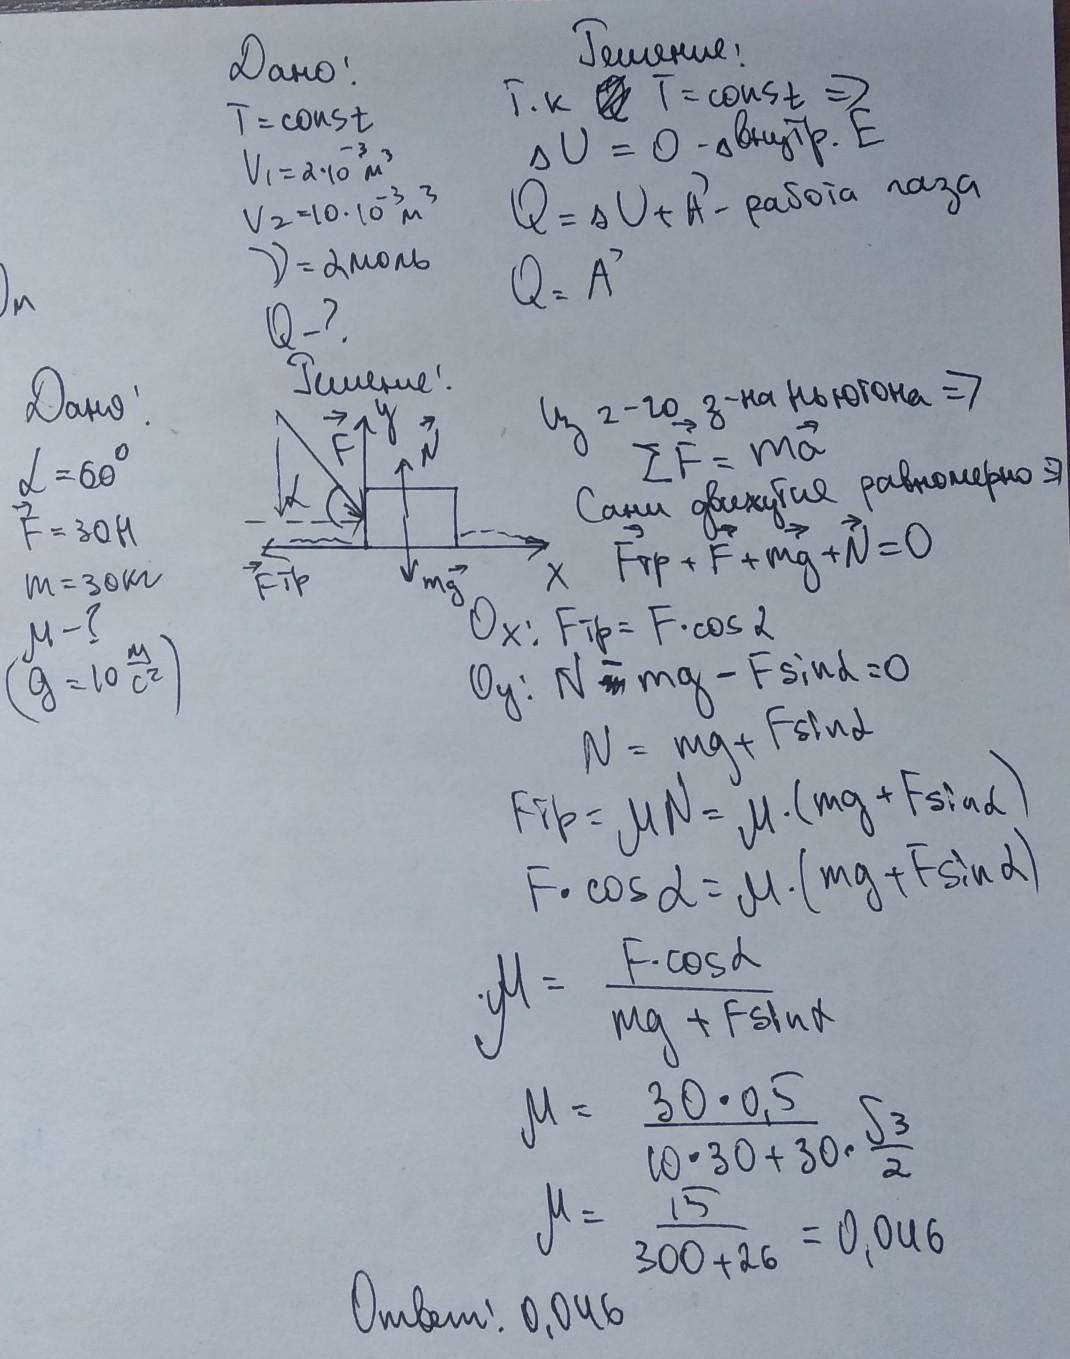 Дано!
T = const
V₁ = 2·10⁻³ м³
V₂ = 10·10⁻³ м³
ν = 2 моль
Q - ?
Решение!
Т.к T = const =>
ΔU = 0 - Δ внутр. E
Q = ΔU + A' - работа газа
Q = A'
Ом
Дано!
α = 60°
F⃗ = 30 Н
m = 30 кг
μ - ?
(g = 10 м/с²)
Решение!
F⃗ y N⃗
α
F⃗тр mg⃗ x
Из 2-го з-на Ньютона =>
ΣF⃗ = ma⃗
Сани движутся равномерно =>
F⃗тр + F⃗ + mg⃗ + N⃗ = 0
Ox: Fтр = F·cosα
Oy: N - mg - Fsinα = 0
N = mg + Fsinα
Fтр = μN = μ·(mg + Fsinα)
F·cosα = μ·(mg + Fsinα)
μ = F·cosα / (mg + Fsinα)
μ = 30·0,5 / (10·30 + 30·√3/2)
μ = 15 / (300 + 26) = 0,046
Ответ! 0,046